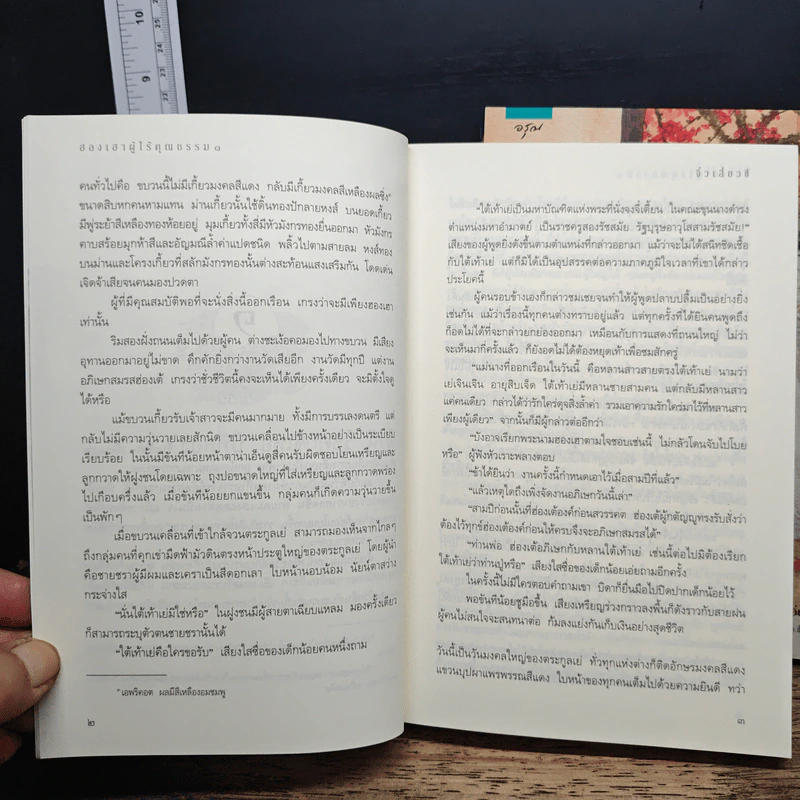 ฮองเฮาผู้ไร้คุณธรรม ๑
คนทั่วไปคือ ขบวนนี้ไม่มีเกี้ยวมงคลสีแดง กลับมีเกี้ยวมงคลสีเหลืองผลซิ่ง*
ขนาดสิบหกคนหามแทน ม่านเกี้ยวนั้นใช้ดิ้นทองปักลายหงส์ บนยอดเกี้ยว
มีพู่ระย้าสีเหลืองทองห้อยอยู่ มุมเกี้ยวทั้งสี่มีหัวมังกรทองยื่นออกมา หัวมังกร
คาบสร้อยมุกห้าสีและอัญมณีล้ำค่าแปดชนิด พลิ้วไปตามสายลม หงส์ทอง
บนม่านและโครงเกี้ยวที่สลักมังกรทองนั้นต่างสะท้อนแสงเสริมกัน โดดเด่น
เจิดจ้าเสียจนคนมองปวดตา
ผู้ที่มีคุณสมบัติพอที่จะนั่งสิ่งนี้ออกเรือน เกรงว่าจะมีเพียงฮองเฮา
เท่านั้น
ริมสองฝั่งถนนเต็มไปด้วยผู้คน ต่างชะเง้อคอมองไปทางขบวน มีเสียง
อุทานออกมาอยู่ไม่ขาด คึกคักยิ่งกว่างานวัดเสียอีก งานวัดมีทุกปี แต่งาน
อภิเษกสมรสฮ่องเต้ เกรงว่าชั่วชีวิตนี้คงจะเห็นได้เพียงครั้งเดียว จะมีตั้งใจดู
ได้หรือ
แม้ขบวนเกี้ยวรับเจ้าสาวจะมีคนมากมาย ทั้งมีการบรรเลงดนตรี แต่
กลับไม่มีความวุ่นวายเลยสักนิด ขบวนเคลื่อนไปข้างหน้าอย่างเป็นระเบียบ
เรียบร้อย ในนั้นมีขันทีน้อยหน้าตาน่าเอ็นดูสี่คนรับผิดชอบโยนเหรียญและ
ลูกกวาดให้ฝูงชนโดยเฉพาะ ถุงปอขนาดใหญ่ที่ใส่เหรียญและลูกกวาดพร่อง
ไปเกือบครึ่งแล้ว เมื่อขันทีน้อยยกแขนขึ้น กลุ่มคนก็เกิดความวุ่นวายขึ้น
เป็นพักๆ
เมื่อขบวนเคลื่อนที่เข้าใกล้จวนตระกูลเย่ สามารถมองเห็นจากไกลๆ
ถึงกลุ่มคนที่คุกเข่ามืดฟ้ามัวดินตรงหน้าประตูใหญ่ของตระกูลเย่ โดยผู้นำ
คือชายชราผู้มีผมและเคราเป็นสีดอกเลา ใบหน้านอบน้อม นัยน์ตาสว่าง
กระจ่างใส
“นั่นใต้เท้าเย่มิใช่หรือ” ในฝูงชนมีผู้สายตาเฉียบแหลม มองครั้งเดียว
ก็สามารถระบุตัวตนชายชรานั้นได้
“ใต้เท้าเย่คือใครขอรับ” เสียงใสซื่อของเด็กน้อยคนหนึ่งถาม
* เอพริคอต ผลมีสีเหลืองอมชมพู
๒
อรุณ
จิ่วเสี่ยวชี
“ใต้เท้าเย่เป็นมหาบัณฑิตแห่งพระที่นั่งจงจี๋เตี้ยน ในคณะขุนนางดำรง
ตำแหน่งมหาอำมาตย์ เป็นราชครูสองรัชสมัย รัฐบุรุษอาวุโสสามรัชสมัย!”
เสียงของผู้พูดยิ่งดังขึ้นตามตำแหน่งที่กล่าวออกมา แม้ว่าจะไม่ได้สนิทชิดเชื้อ
กับใต้เท้าเย่ แต่ก็มิได้เป็นอุปสรรคต่อความภาคภูมิใจเวลาที่เขาได้กล่าว
ประโยคนี้
ผู้คนรอบข้างเองก็กล่าวชมเชยจนทำให้ผู้พูดปลาบปลื้มเป็นอย่างยิ่ง
เช่นกัน แม้ว่าเรื่องนี้ทุกคนต่างทราบอยู่แล้ว แต่ทุกครั้งที่ได้ยินคนพูดถึง
ก็อดไม่ได้ที่จะกล่าวยกย่องออกมา เหมือนกับการแสดงที่ถนนใหญ่ ไม่ว่า
จะเห็นมากี่ครั้งแล้ว ก็ยังอดไม่ได้ต้องหยุดเท้าเพื่อชมสักครู่
“แม่นางที่ออกเรือนในวันนี้ คือหลานสาวสายตรงใต้เท้าเย่ นามว่า
เย่เจินเจิน อายุสิบเจ็ด ใต้เท้าเย่มีหลานชายสามคน แต่กลับมีหลานสาว
แค่คนเดียว กล่าวได้ว่ารักใคร่ดุจสิ่งล้ำค่า รวมเอาความรักใคร่มาไว้ที่หลานสาว
เพียงผู้เดียว” จากนั้นก็มีผู้กล่าวต่ออีกว่า
“บังอาจเรียกพระนามฮองเฮาตามใจชอบเช่นนี้ ไม่กลัวโดนจับไปโบย
หรือ” ผู้ฟังหัวเราะพลางตอบ
“ข้าได้ยินว่า งานครั้งนี้กำหนดเอาไว้เมื่อสามปีที่แล้ว”
“แล้วเหตุใดถึงเพิ่งจัดงานอภิเษกวันนี้เล่า”
“สามปีก่อนนั้นที่ฮ่องเต้องค์ก่อนสวรรคต ฮ่องเต้ผู้กตัญญูทรงรับสั่งว่า
ต้องไว้ทุกข์ฮ่องเต้องค์ก่อนให้ครบจึงจะอภิเษกสมรสได้”
“ท่านพ่อ ฮ่องเต้อภิเษกกับหลานใต้เท้าเย่ เช่นนี้ต่อไปมิต้องเรียก
ใต้เท้าเย่ว่าท่านปู่หรือ” เสียงใสซื่อของเด็กน้อยเอ่ยถามอีกครั้ง
ในครั้งนี้ไม่มีใครตอบคำถามเขา บิดาก็ยื่นมือไปปิดปากเด็กน้อยไว้
พอขันทีน้อยชูมือขึ้น เสียงเหรียญร่วงกราวลงพื้นก็ดังราวกับสายฝน
ผู้คนไม่สนใจจะสนทนาต่อ ก้มลงแย่งกันเก็บเงินอย่างสุดชีวิต
วันนี้เป็นวันมงคลใหญ่ของตระกูลเย่ ทั่วทุกแห่งต่างก็ติดอักษรมงคลสีแดง
แขวนบุปผาแพรพรรณสีแดง ใบหน้าของทุกคนเต็มไปด้วยความยินดี ทว่า
๓